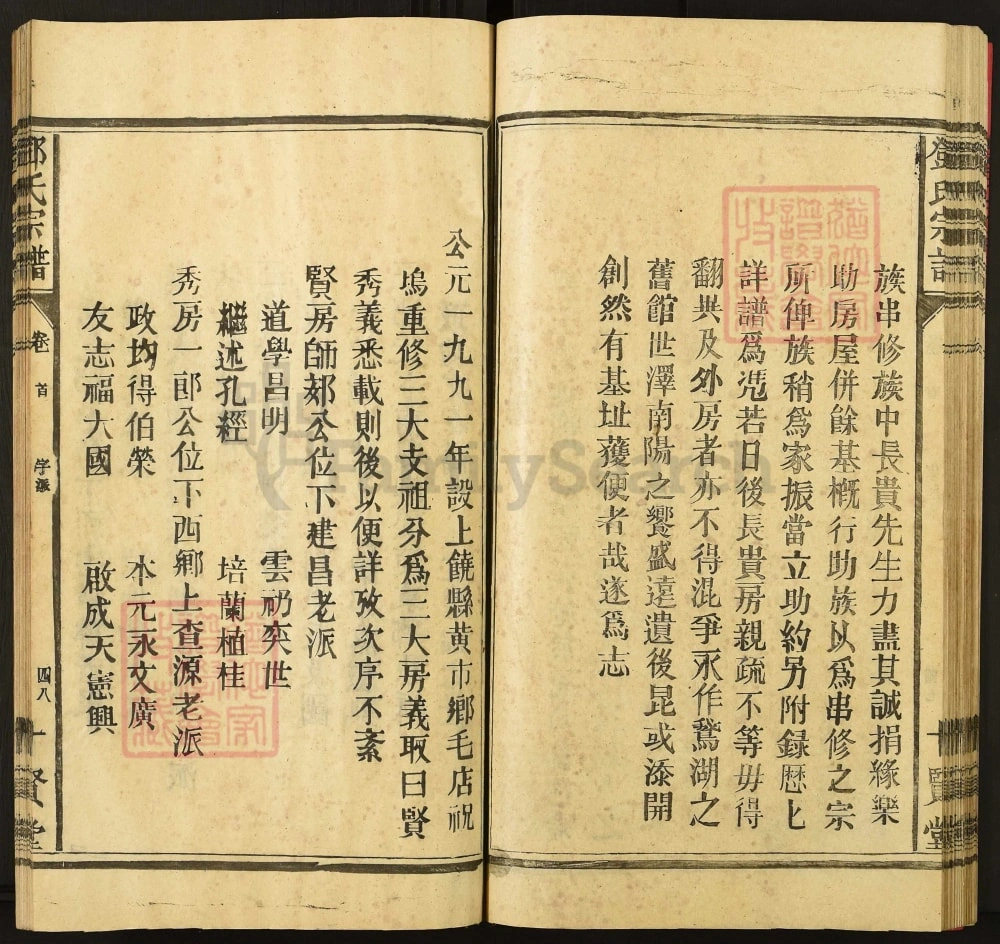 鄧氏宗譜
賢堂
族串修族中長貴先生力盡其誠捐緣樂
助房屋併餘基概行助族以爲串修之宗
所俾族稍爲家振當立助約另附録歷匕
詳譜爲凭若日後長貴房親疏不等毋得
翻共及外房者亦不得混爭永作鵞湖之
舊館世澤南陽之饗盛遠遺後昆或添開
創然有基址獲便者哉遂爲志
公元一九九一年設上饒縣黄市鄉毛店祝
塢重修三大支祖分爲三大房義取曰賢
秀義悉載則後以便詳攷次序不紊
賢房師郊公位下建昌老派
道學昌明 雲礽奕世
繼述孔經 培蘭植桂
秀房一郎公位下西鄉上查源老派
政均得伯榮 本元永文廣
友志福大國 啟成天憲興
鄧氏宗譜
卷首
字派
四八
賢堂
FamilySearch